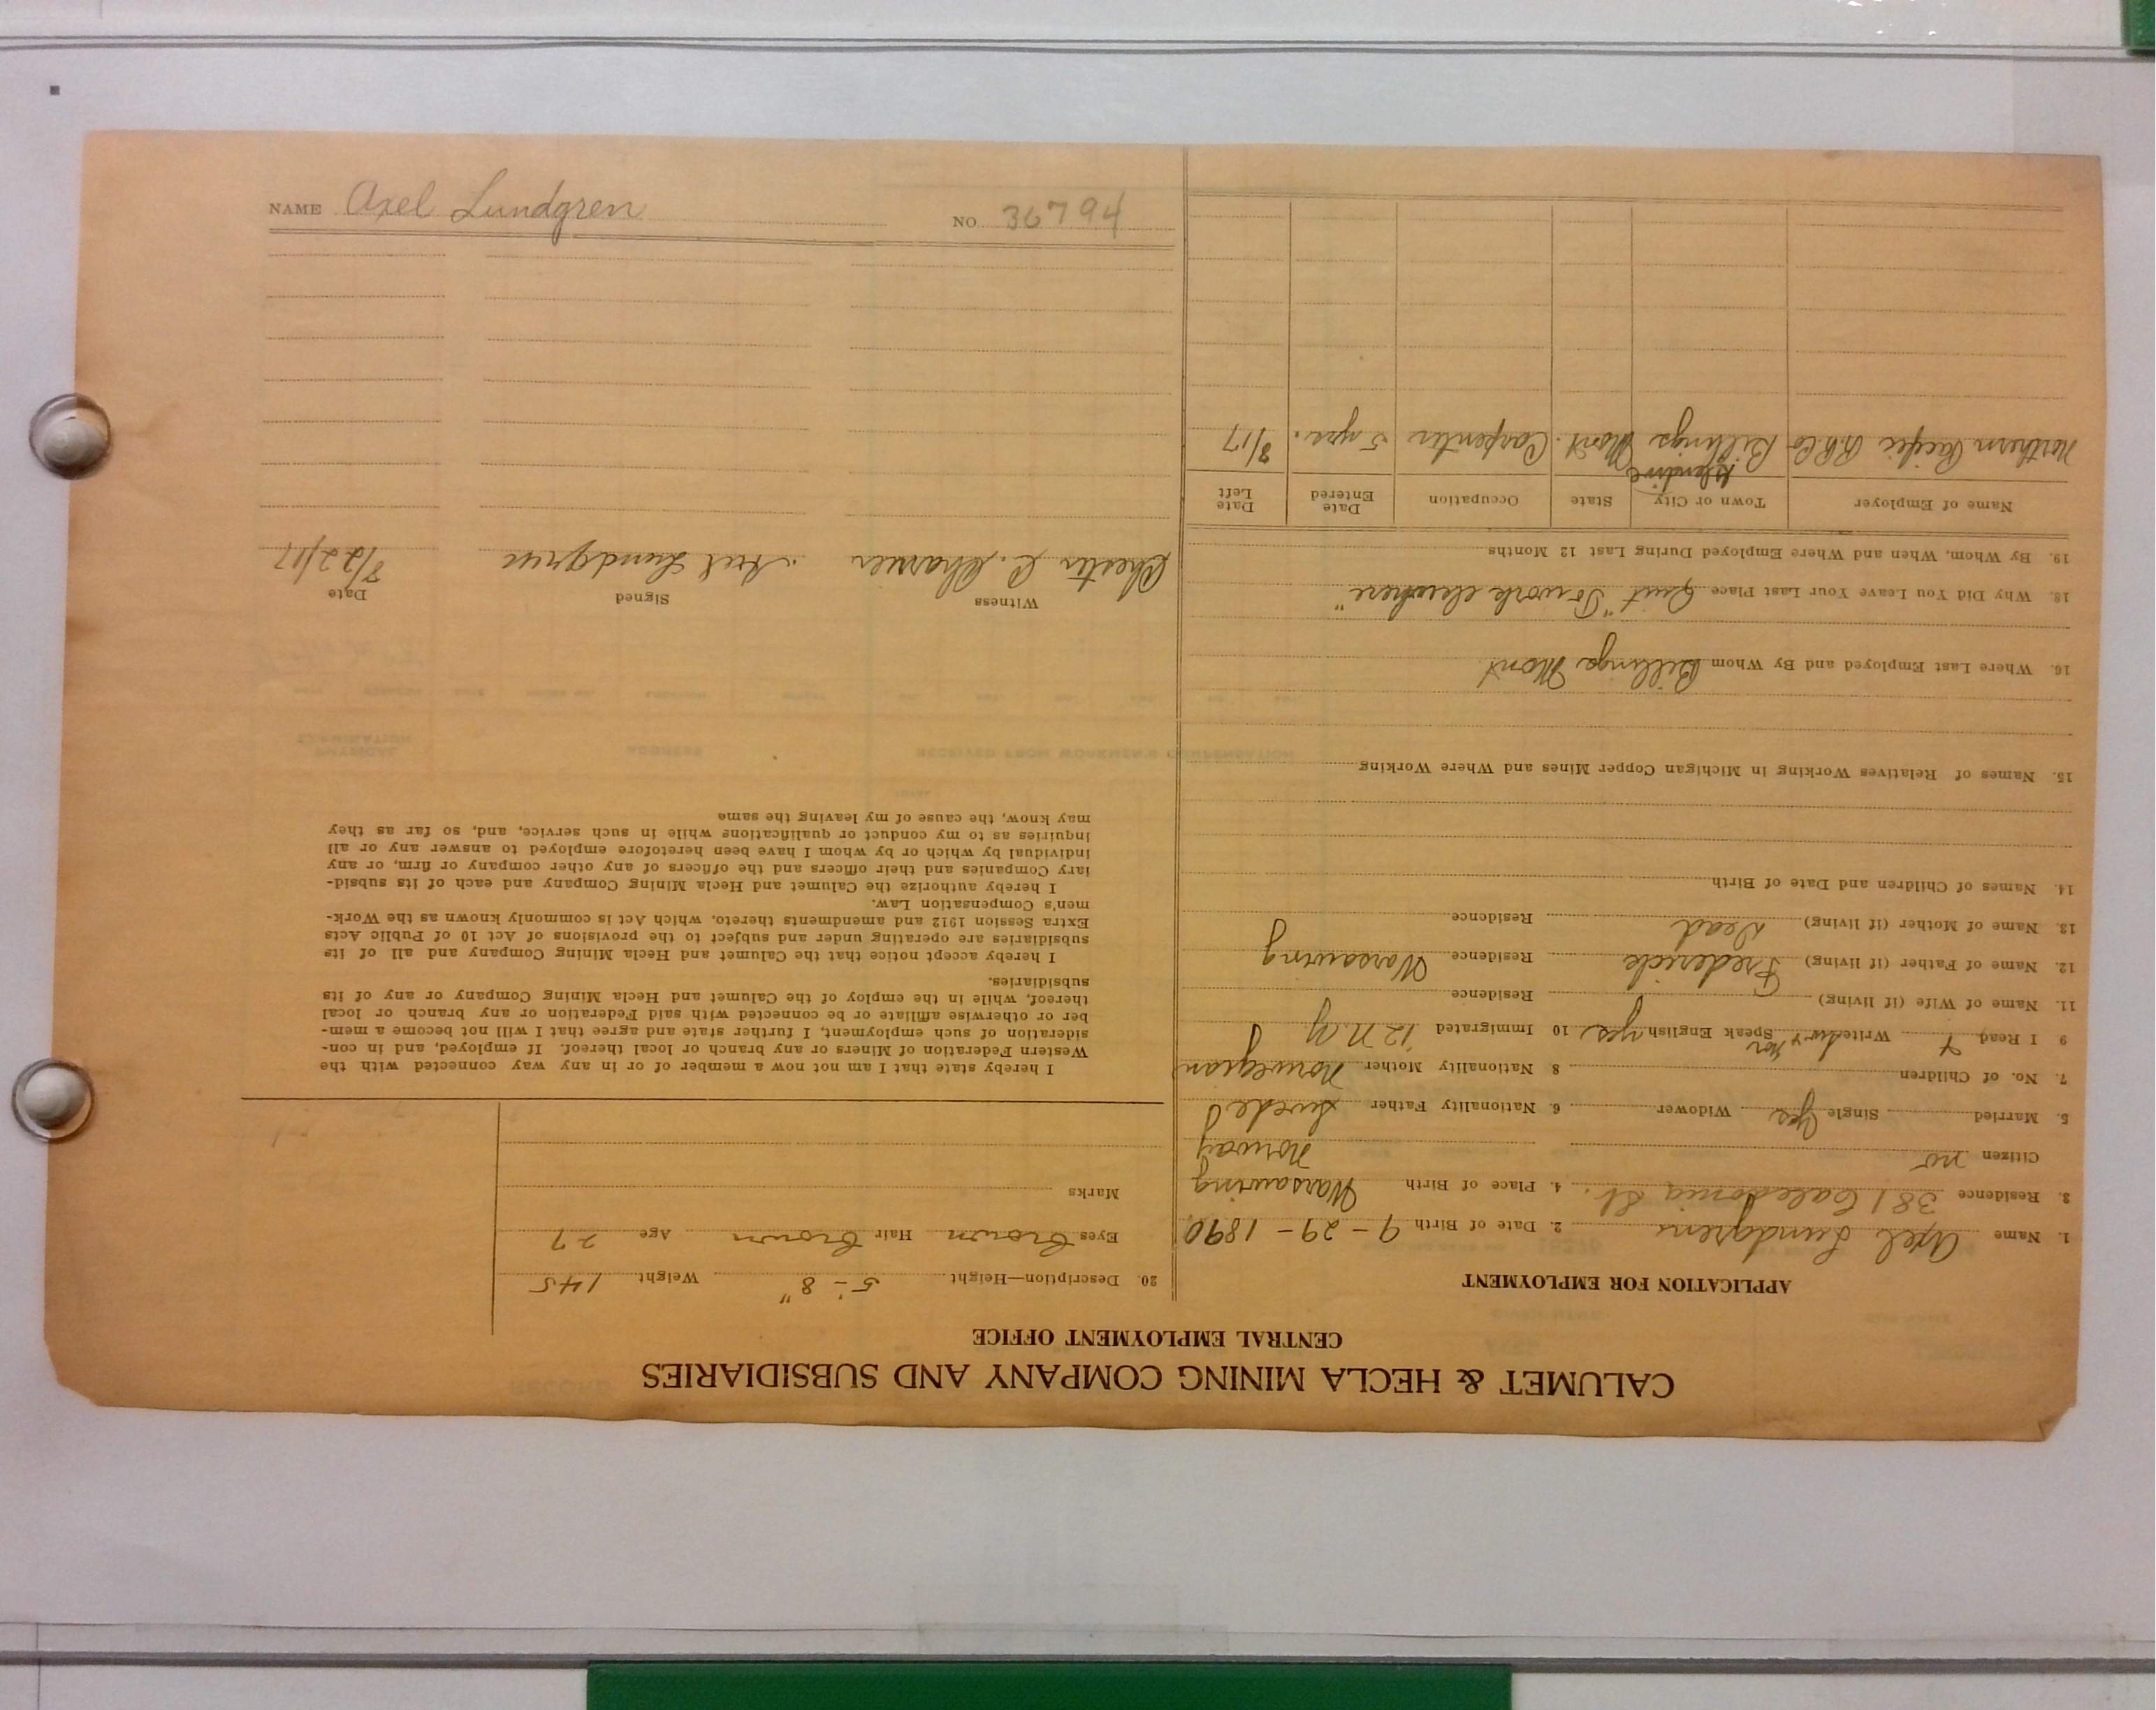 CALUMET & HECLA MINING COMPANY AND SUBSIDIARIES
CENTRAL EMPLOYMENT OFFICE
APPLICATION FOR EMPLOYMENT
1. Name Axel Lundgren 2. Date of Birth 9-29-1890
3. Residence 381 Caledonia St. 4. Place of Birth Warsawing
Citizen no Norway
5. Married Single yes Widower 6. Nationality Father Swede
7. No. of Children 8 Nationality Mother Norwegian
9 I Read Write Speak English yes 10 Immigrated '12 N.Y.
11. Name of Wife (if living) Residence
12. Name of Father (if living) Frederick Residence Warsawing
13. Name of Mother (if living) Dead Residence
14. Names of Children and Date of Birth
15. Names of Relatives Working in Michigan Copper Mines and Where Working
16. Where Last Employed and By Whom Billings Mont
18. Why Did You Leave Your Last Place Quit "To work elsewhere"
19. By Whom, When and Where Employed During Last 12 Months
Name of Employer Town or City State Occupation Date Entered Date Left
Glendive
Northern Pacific R.R. Co Billings Mont. Carpenter 5 yrs. 8/17
20. Description—Height 5-8" Weight 145
Eyes Brown Hair Brown Age 27
Marks
I hereby state that I am not now a member of or in any way connected with the
Western Federation of Miners or any branch or local thereof. If employed, and in con-
sideration of such employment, I further state and agree that I will not become a mem-
ber or otherwise affiliate or be connected with said Federation or any branch or local
thereof, while in the employ of the Calumet and Hecla Mining Company or any of its
subsidiaries.
I hereby accept notice that the Calumet and Hecla Mining Company and all of its
subsidiaries are operating under and subject to the provisions of Act 10 of Public Acts
Extra Session 1912 and amendments thereto, which Act is commonly known as the Work-
men's Compensation Law.
I hereby authorize the Calumet and Hecla Mining Company and each of its subsid-
iary Companies and their officers and the officers of any other company or firm, or any
individual by which or by whom I have been heretofore employed to answer any or all
inquiries as to my conduct or qualifications while in such service, and, so far as they
may know, the cause of my leaving the same
Witness Signed Date
Chester C. Axel Lundgren 8/22/17
NAME Axel Lundgren NO 36794